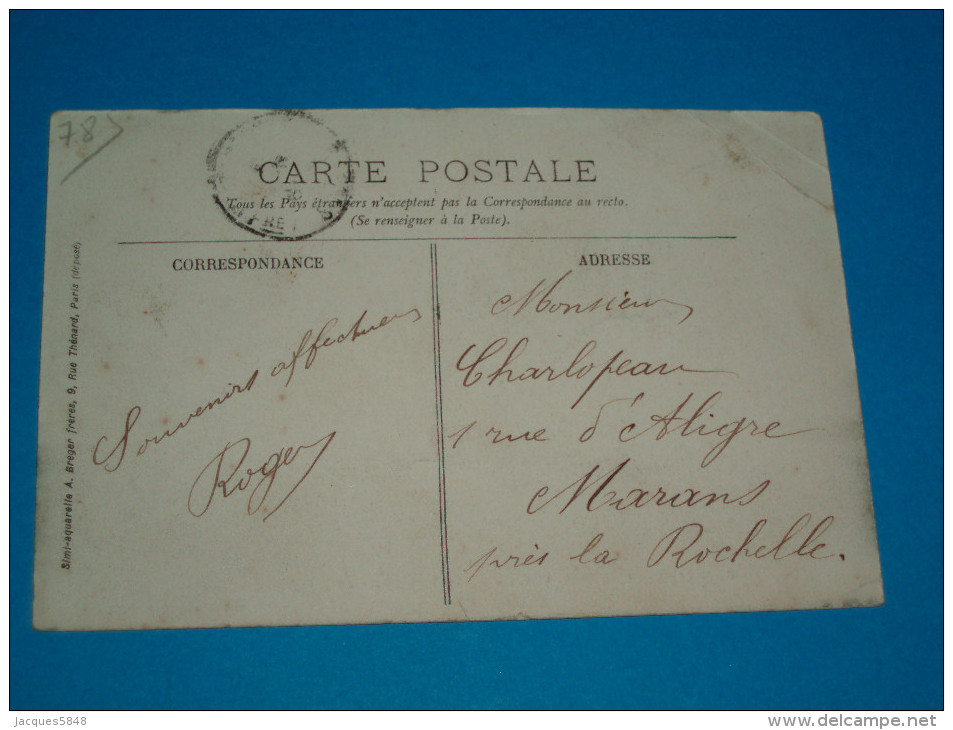 78
CARTE POSTALE
Tous les Pays étrangers n'acceptent pas la Correspondance au recto.
(Se renseigner à la Poste).
CORRESPONDANCE
Souvenirs affectueux
Roger
ADRESSE
Monsieur
Charlopeau
1 rue d'Aligre
Marans
près la Rochelle.
Simi-aquarelle A. Breger frères, 9, Rue Thénard, Paris (déposé)
Jacques5848
www.delcampe.net